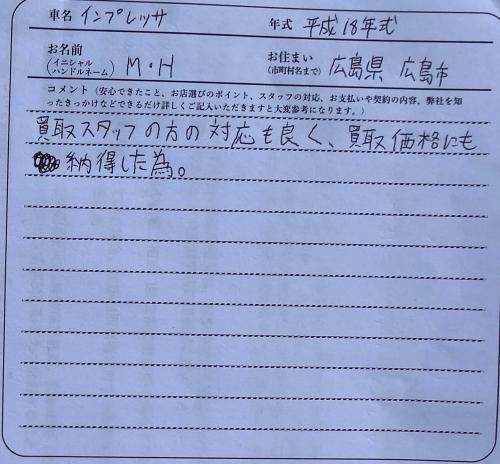 車名 インプレッサ 年式 平成18年式
お名前 (イニシャル ハンドルネーム) M・H お住まい (市町村名まで) 広島県 広島市
コメント (安心できたこと、お店選びのポイント、スタッフの対応、お支払いや契約の内容、弊社を知
ったきっかけなどできるだけ詳しくご記入いただきますと大変参考になります。)
買取スタッフの方の対応も良く、買取価格にも
納得した為。